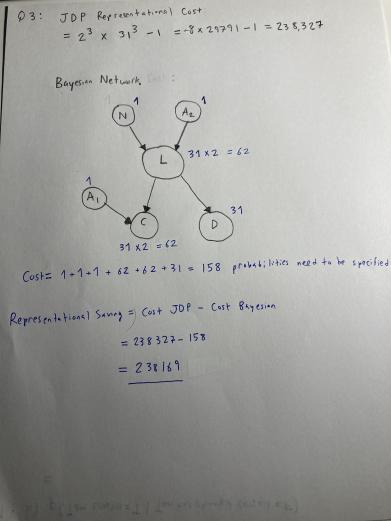 Q3: JDP Representational Cost
= 2³ × 31³ - 1 = 8 × 29791 - 1 = 238,327
Bayesian Network:
1 1
N A₂
L 31 × 2 = 62
1
A₁
C D 31
31 × 2 = 62
Cost = 1+1+1 + 62 + 62 + 31 = 158 probabilities need to be specified
Representational Saving = Cost JDP - Cost Bayesian
= 238327 - 158
= 238169